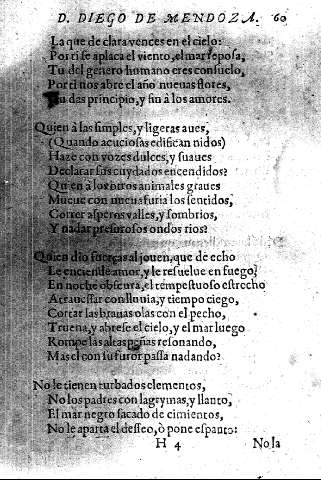 D. DIEGO DE MENDOZA. 60
La que de clara vences en el cielo:
Por ti se aplaca el viento, el mar reposa,
Tu del genero humano eres consuelo,
Por ti nos abre el año nueuas flores,
das principio, y fin à los amores.
Quien à las simples, y ligeras aues,
(Quando acuciosas edifican nidos)
Haze con vozes dulces, y suaues
Declarar sus cuydados encendidos?
Quien à los otros animales graues
Mueue con nueua furia los sentidos,
Correr asperos valles, y sombrios,
Y nadar presurosos ondos rios?
Quien dio fuerças al jouen, que de echo
Le enciende amor, y le resuelue en fuego,
En noche obscura, el tempestuoso estrecho
Atrauessar con lluuia, y tiempo ciego,
Cortar las brauas olas con el pecho,
Truena, y abrese el cielo, y el mar luego
Rompe las altas peñas resonando,
Mas el con su furor passa nadando?
No le tienen turbados elementos,
No los padres con lagrymas, y llanto,
El mar negro sacado de cimientos,
No le aparta el desseo, ò pone espanto:
H 4 No la